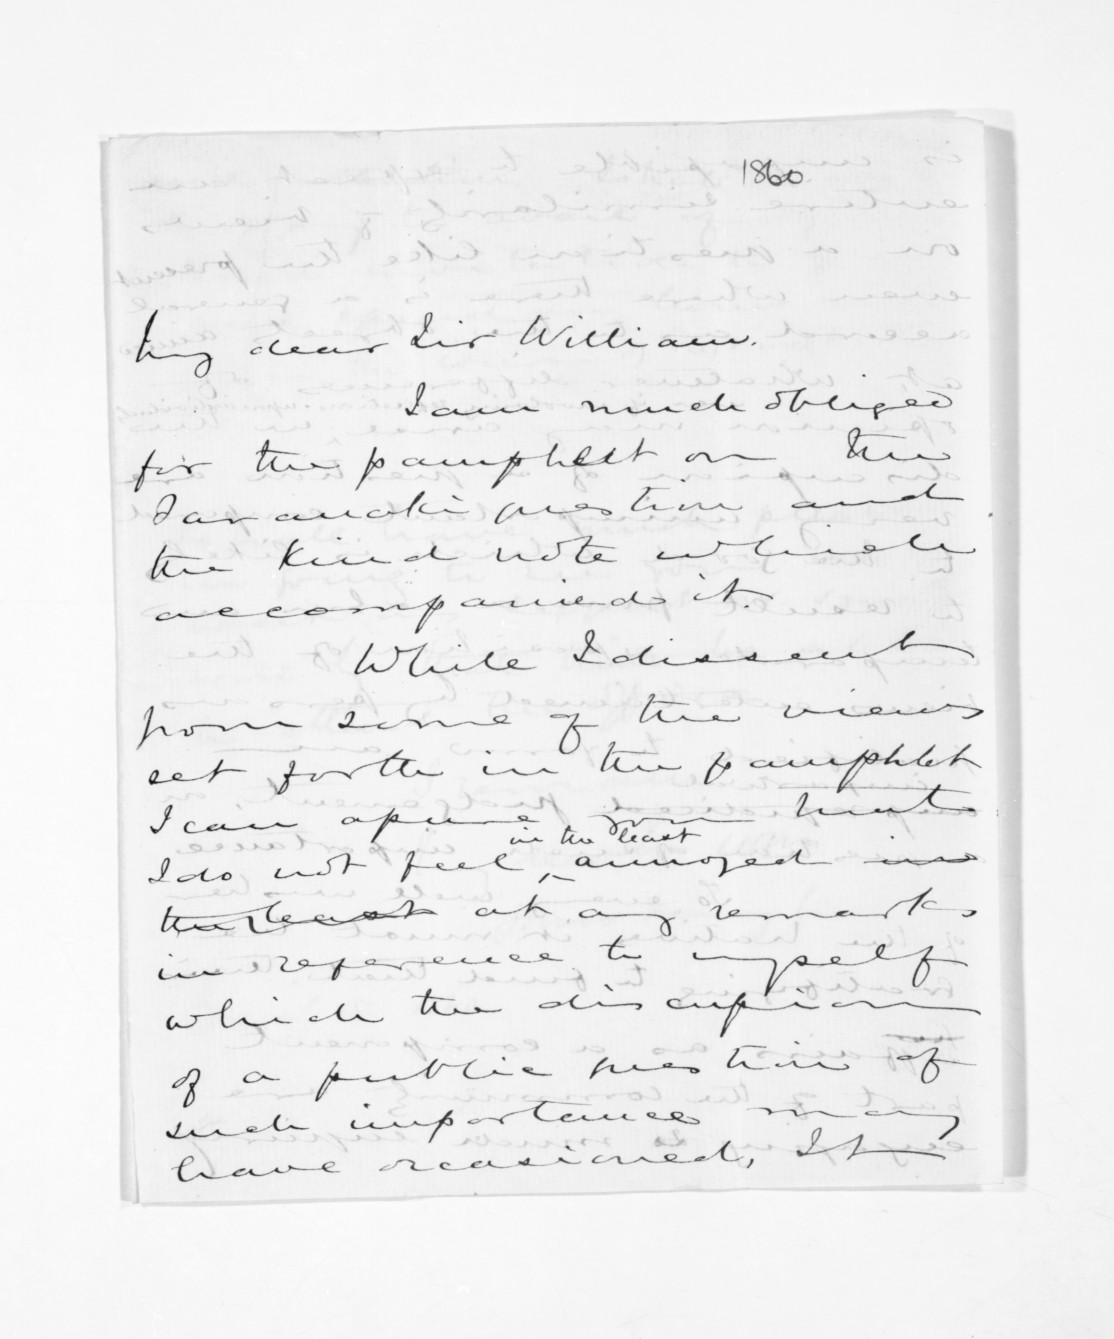 1860
My dear Sir William.
I am much obliged
for the pamphlet on the
Taranaki question and
the kind note which
accompanied it.
While I dissent
from some of the views
set forth in the pamphlet
I can assure you that
I do not feel in the least annoyed in
the least at any remarks
in reference to myself
which the discussion
of a public question of
such importance may
have occasioned, It